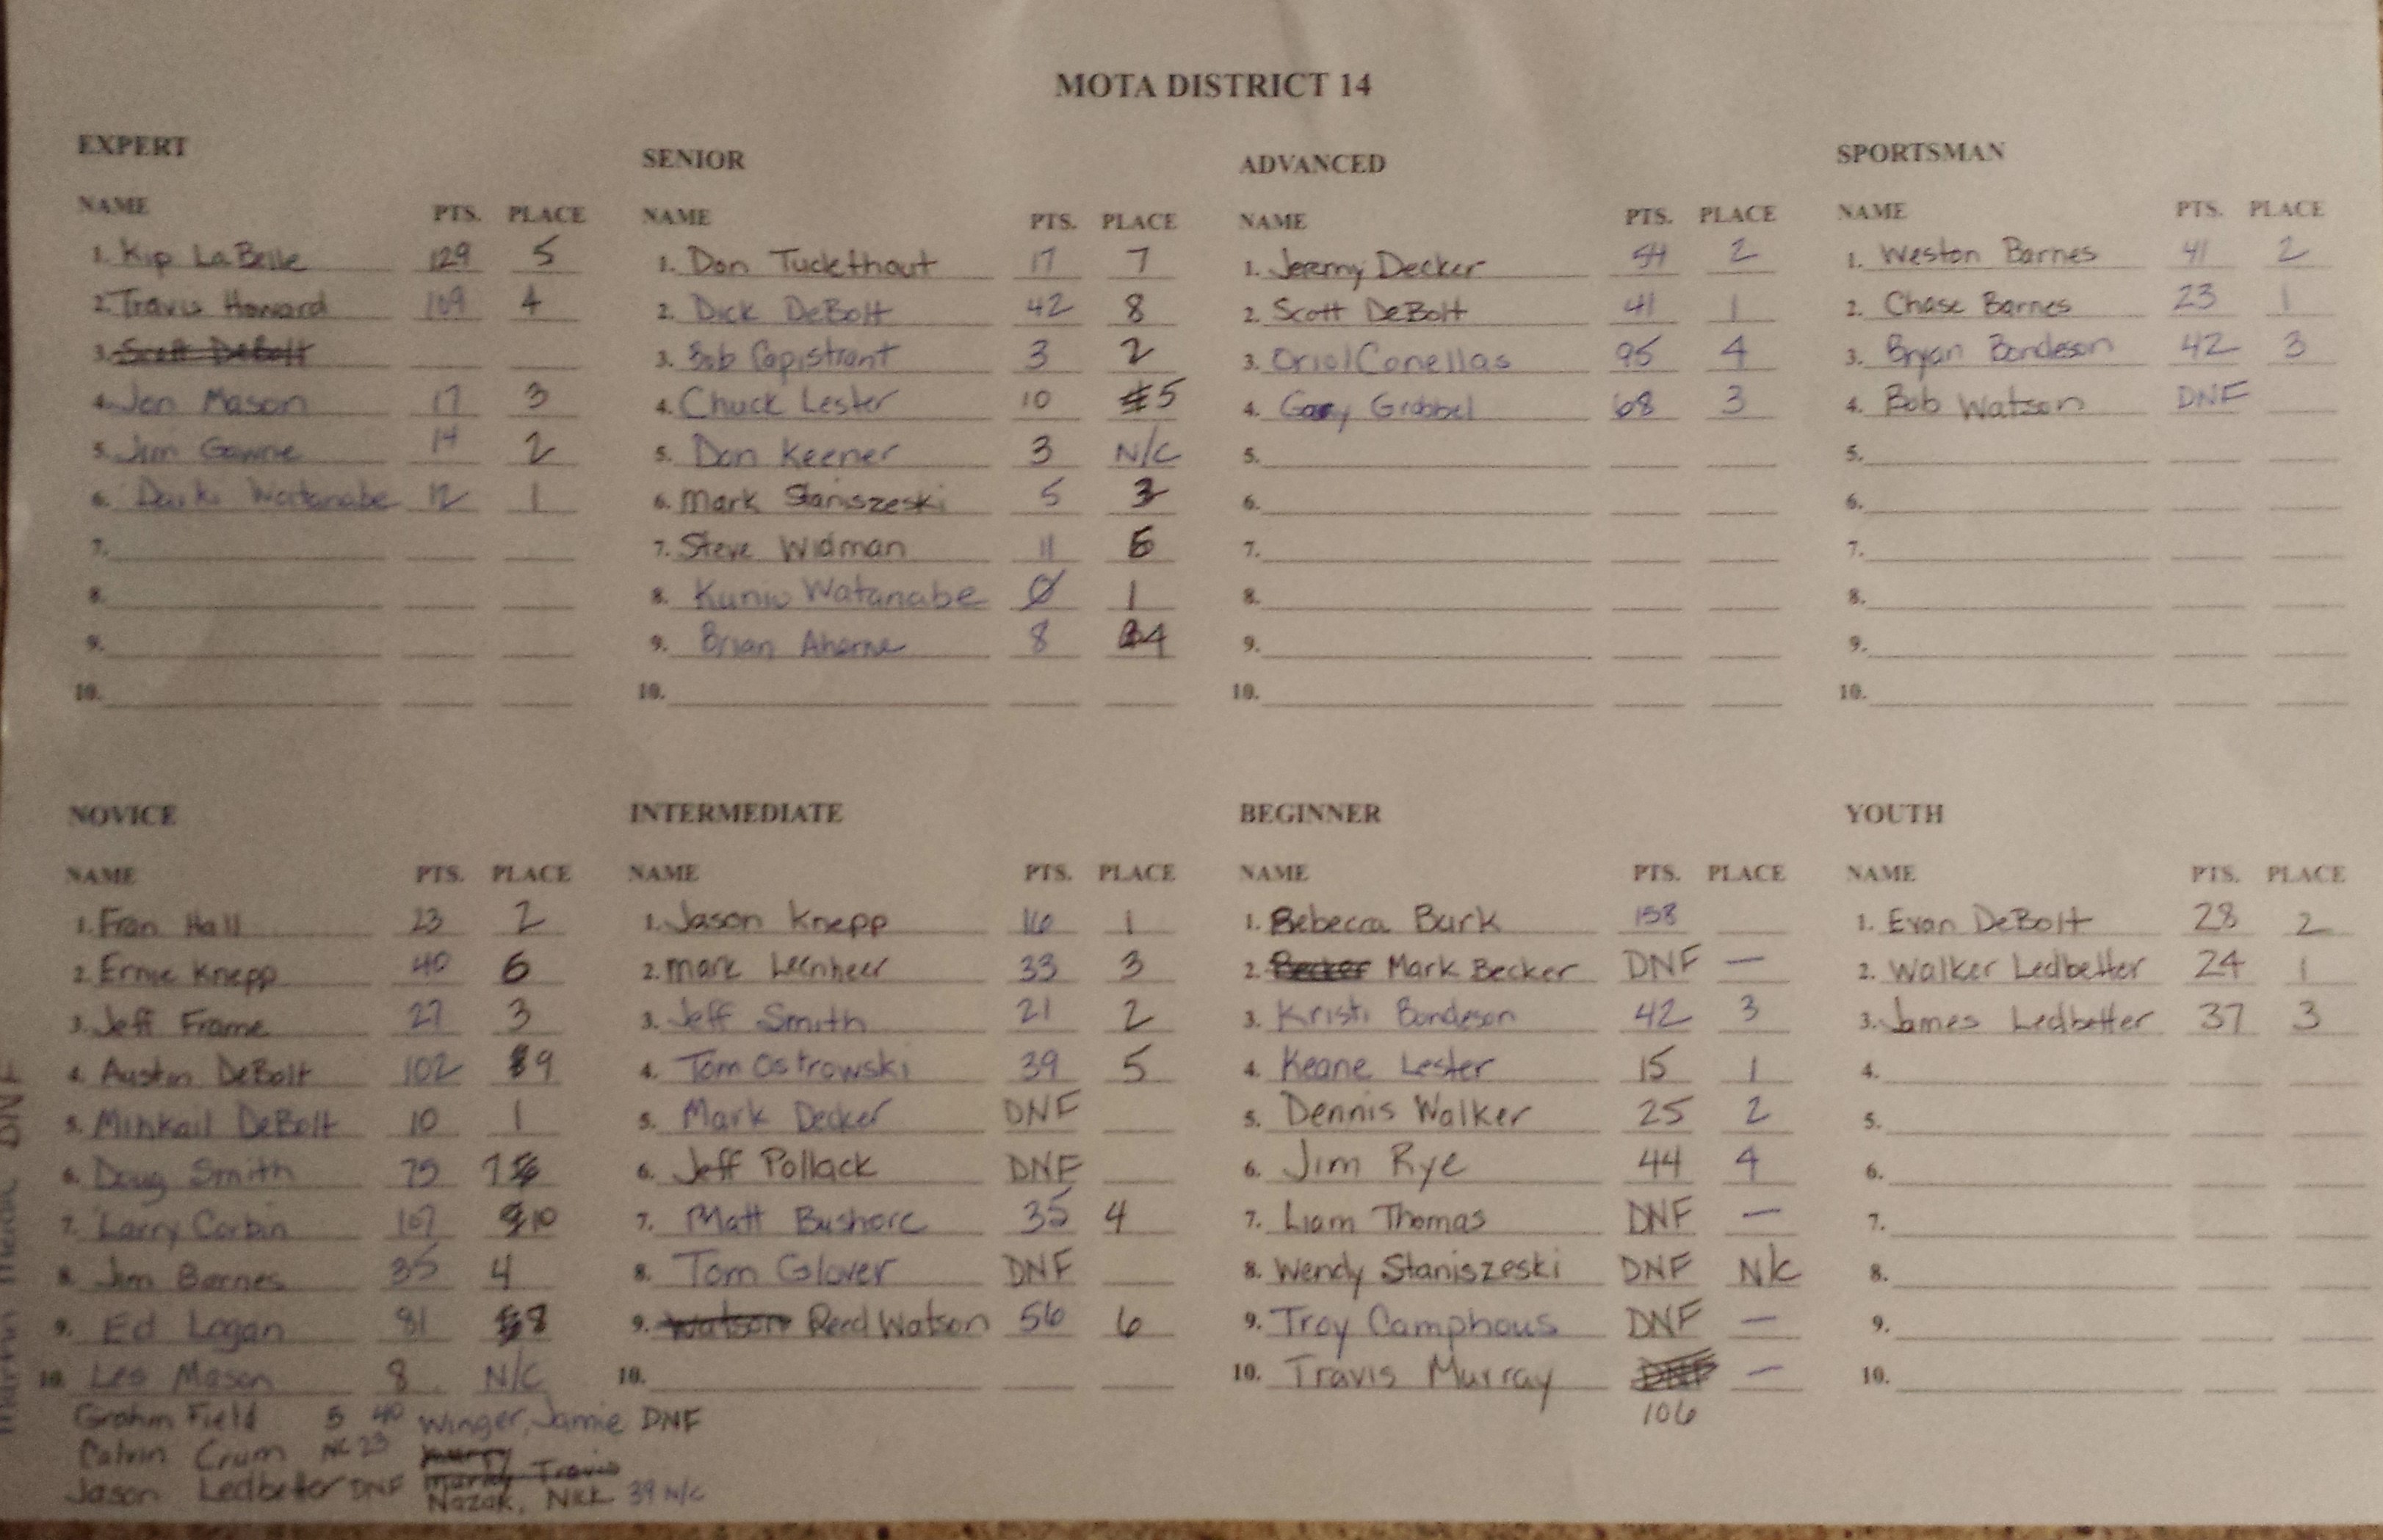 MOTA DISTRICT 14
EXPERT
NAME PTS. PLACE
1. Kip LaBelle 129 5
2. Travis Howard 109 4
3. Scott DeBolt
4. Jon Mason 17 3
5. Jim Gawne 14 2
6. Watanabe 12 1
7.
8.
9.
10.
SENIOR
NAME PTS. PLACE
1. Don Tuckethout 17 7
2. Dick DeBolt 42 8
3. Bob Capistrant 3 2
4. Chuck Lester 10 5
5. Don Keener 3 N/C
6. Mark Staniszeski 5 3
7. Steve Widman 11 6
8. Kunio Watanabe Ø 1
9. Brian Aherne 8 4
10.
ADVANCED
NAME PTS. PLACE
1. Jeremy Decker 54 2
2. Scott DeBolt 41 1
3. Oriol Conellas 95 4
4. Gary Grabbel 68 3
5.
6.
7.
8.
9.
10.
SPORTSMAN
NAME PTS. PLACE
1. Weston Barnes 41 2
2. Chase Barnes 23 1
3. Bryan Bondeson 42 3
4. Bob Watson DNF
5.
6.
7.
8.
9.
10.
NOVICE
NAME PTS. PLACE
1. Fran Hall 23 2
2. Ernie Knepp 40 6
3. Jeff Frame 27 3
4. Austin DeBolt 102 9
5. Mihkail DeBolt 10 1
6. Doug Smith 75 7
7. Larry Corbin 107 10
8. Jim Barnes 35 4
9. Ed Logan 81 8
10. Les Mason 8 N/C
Grahm Field 5 40 Winger, Jamie DNF
Calvin Crum NC 23
Jason Ledbetter DNF Travis
Nozak, Nick 39 N/C
DNF
INTERMEDIATE
NAME PTS. PLACE
1. Jason Knepp 16 1
2. Mark Leenheer 33 3
3. Jeff Smith 21 2
4. Tom Ostrowski 39 5
5. Mark Decker DNF
6. Jeff Pollack DNF
7. Matt Bushore 35 4
8. Tom Glover DNF
9. Watson Reed Watson 56 6
10.
BEGINNER
NAME PTS. PLACE
1. Rebecca Burk 158
2. Becker Mark Becker DNF —
3. Kristi Bondeson 42 3
4. Keane Lester 15 1
5. Dennis Walker 25 2
6. Jim Rye 44 4
7. Liam Thomas DNF —
8. Wendy Staniszeski DNF N/C
9. Troy Camphous DNF —
10. Travis Murray DNF —
106
YOUTH
NAME PTS. PLACE
1. Evan DeBolt 28 2
2. Walker Ledbetter 24 1
3. James Ledbetter 37 3
4.
5.
6.
7.
8.
9.
10.